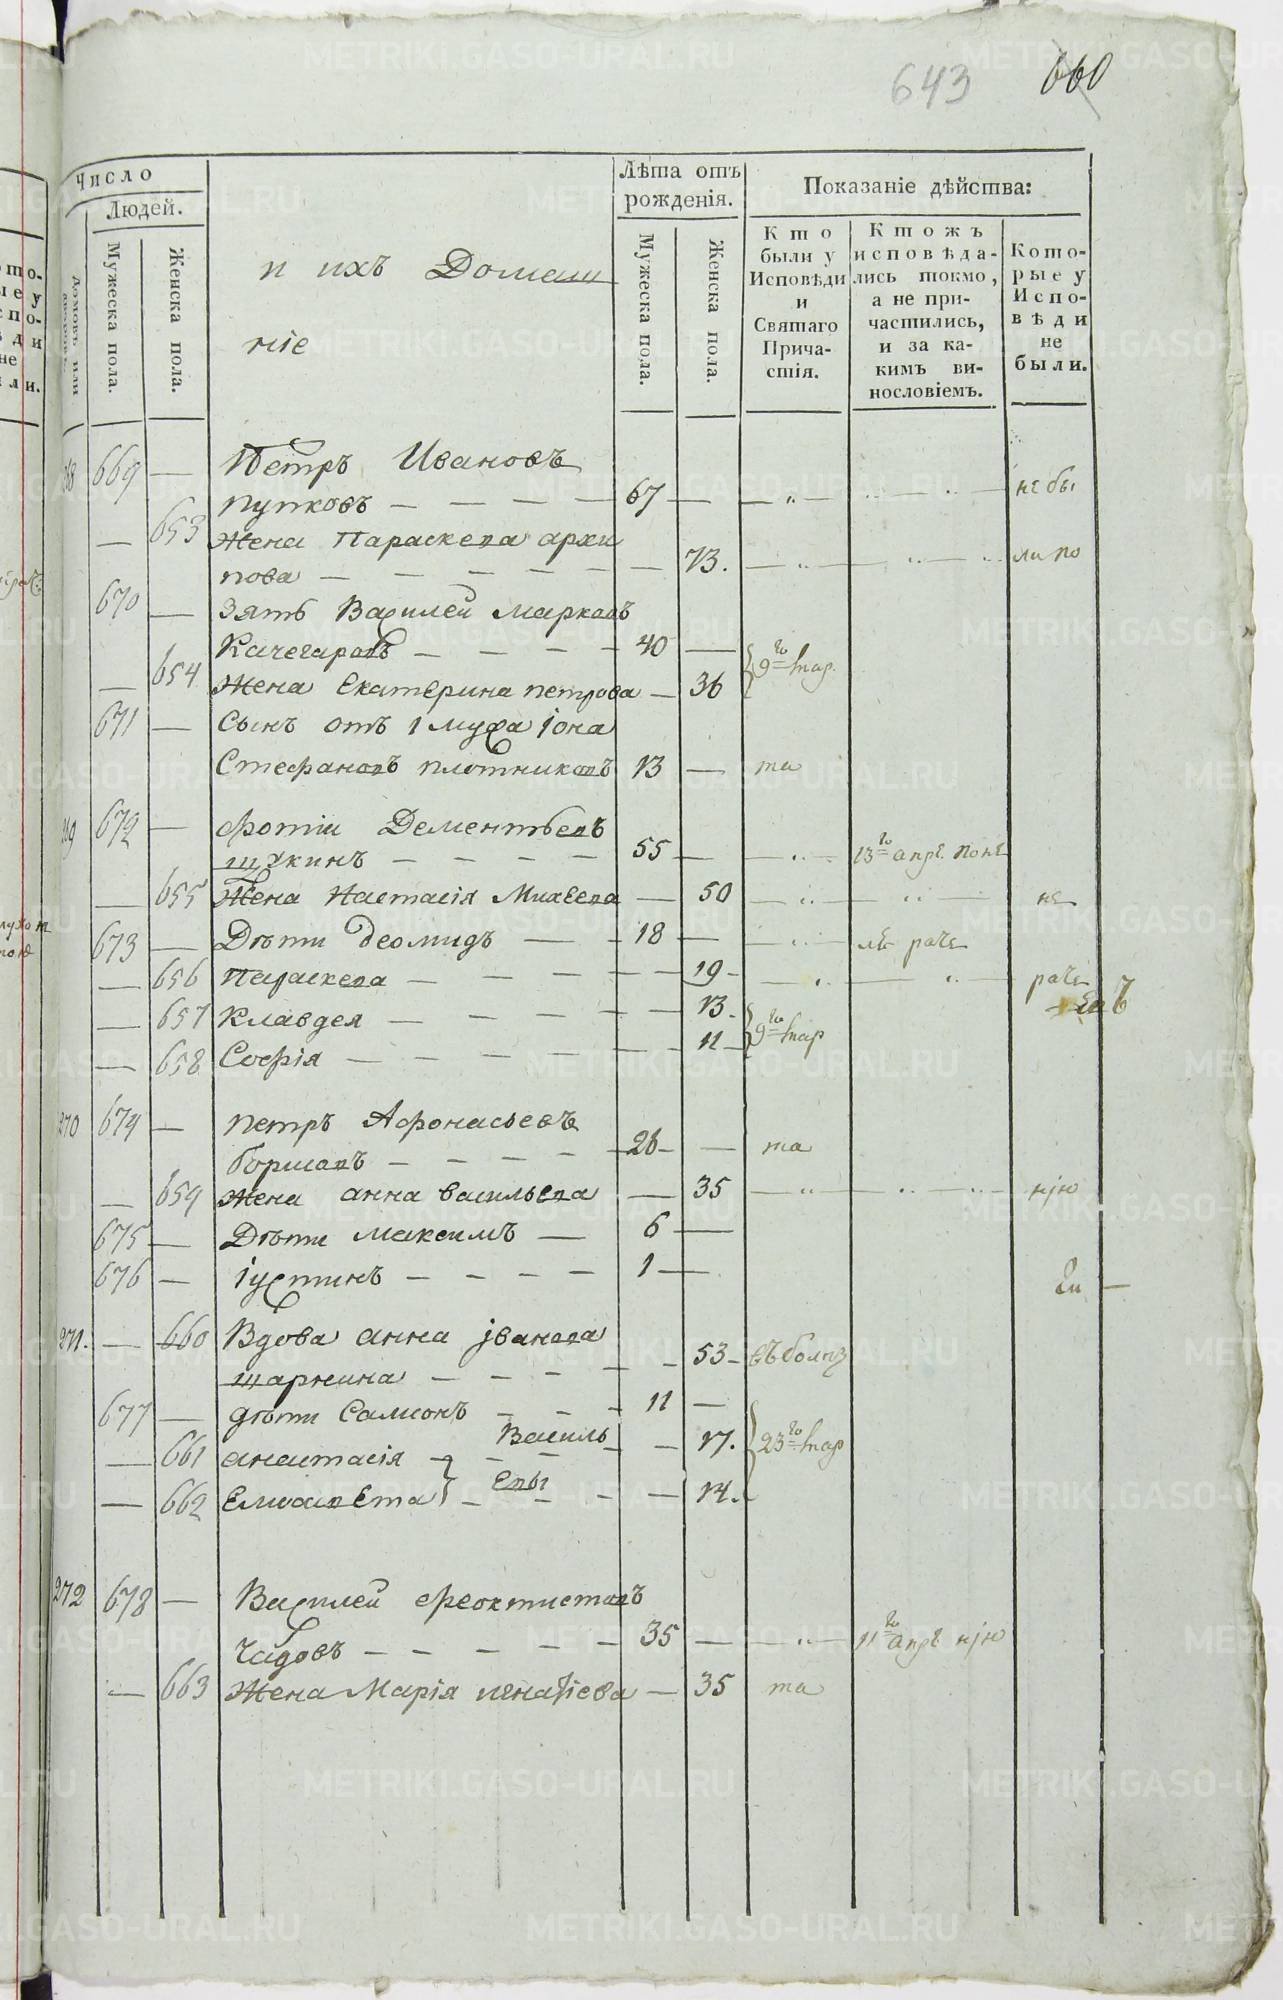 643 660
Число
Людей.
Мужеска пола.
Женска пола.
и ихъ Домаш
ніе
Лѣта отъ
рожденія.
Мужеска пола.
Женска пола.
Показаніе дѣйства:
Кто
были у
Исповѣди
и
Святаго
Прича-
стія.
Ктожъ
исповѣда-
лись токмо,
а не при-
частились,
и за ка-
кимъ ви-
нословіемъ.
Кото-
рые у
Испо-
вѣди
не
были.
669 — Петръ Ивановъ
Пупковъ — 67 — не бы
— 653 Жена Параскева архи
пова — 73. — ли по
670 — Зять Василей Марковъ
Качегаровъ — 40 —
— 654 Жена Екатерина петрова — 36 9го мар.
671 — Сынъ отъ 1 мужа іона
Стефановъ плотниковъ 13 — та
672 — Фотіи Дементьевъ
щукинъ — 55 — 13го апрѣ
— 655 Жена Настасія Михеева — 50 — не
673 — Дѣти Деомидъ — 18 — раче
— 656 Параскева — 19 — раче
— 657 Клавдея — 13.
— 658 Софія — 11 9го мар
270 674 — петръ Афонасьевъ
Боршовъ — 26 — та
— 659 Жена анна васильева — 35 — нію
675 — Дѣти Максимъ — 6 —
676 — іустинъ — 1 —
271. — 660 Вдова анна іванова
шаркина — 53 —
677 — дѣти Самсонъ — 11 —
— 661 анастасія — Василь — 17. 23го мар
— 662 Елисавета — евы — 14.
272 678 — Василей Феоктистовъ
Чадовъ — 35 — 11го апрѣ нію
— 663 Жена Марія игнатіева — 35 та
METRIKI.GASO-URAL.RU